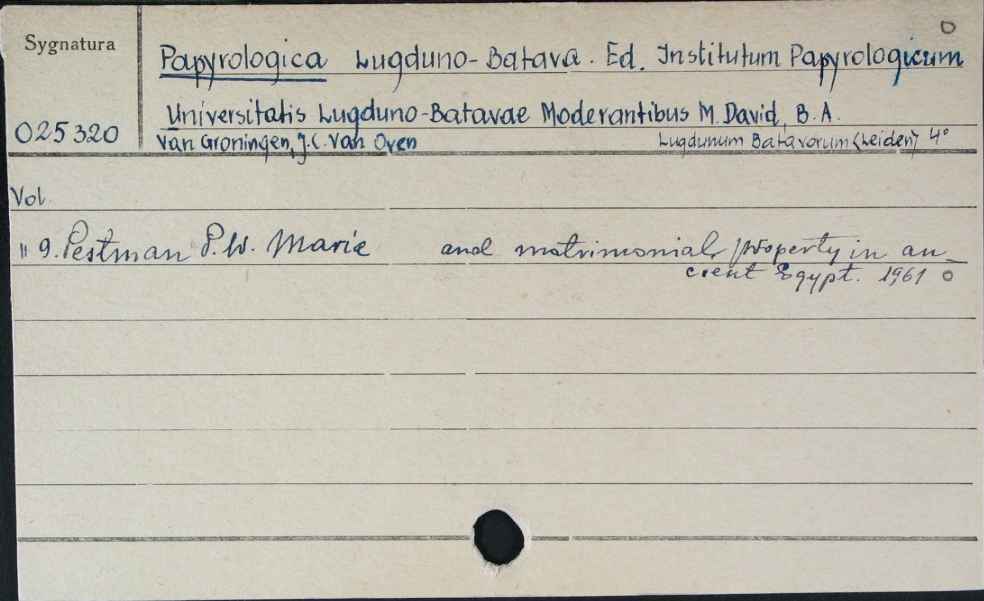 O
Sygnatura
Papyrologica Lugduno-Batava. Ed. Institutum Papyrologicum
Universitatis Lugduno-Batavae Moderantibus M. David, B. A.
025320
van Groningen, J. C. van Oven Lugdunum Batavorum (Leiden) 4°
Vol.
" 9. Pestman P. W. Marie and matrimonial property in an-
cient Egypt. 1961 o